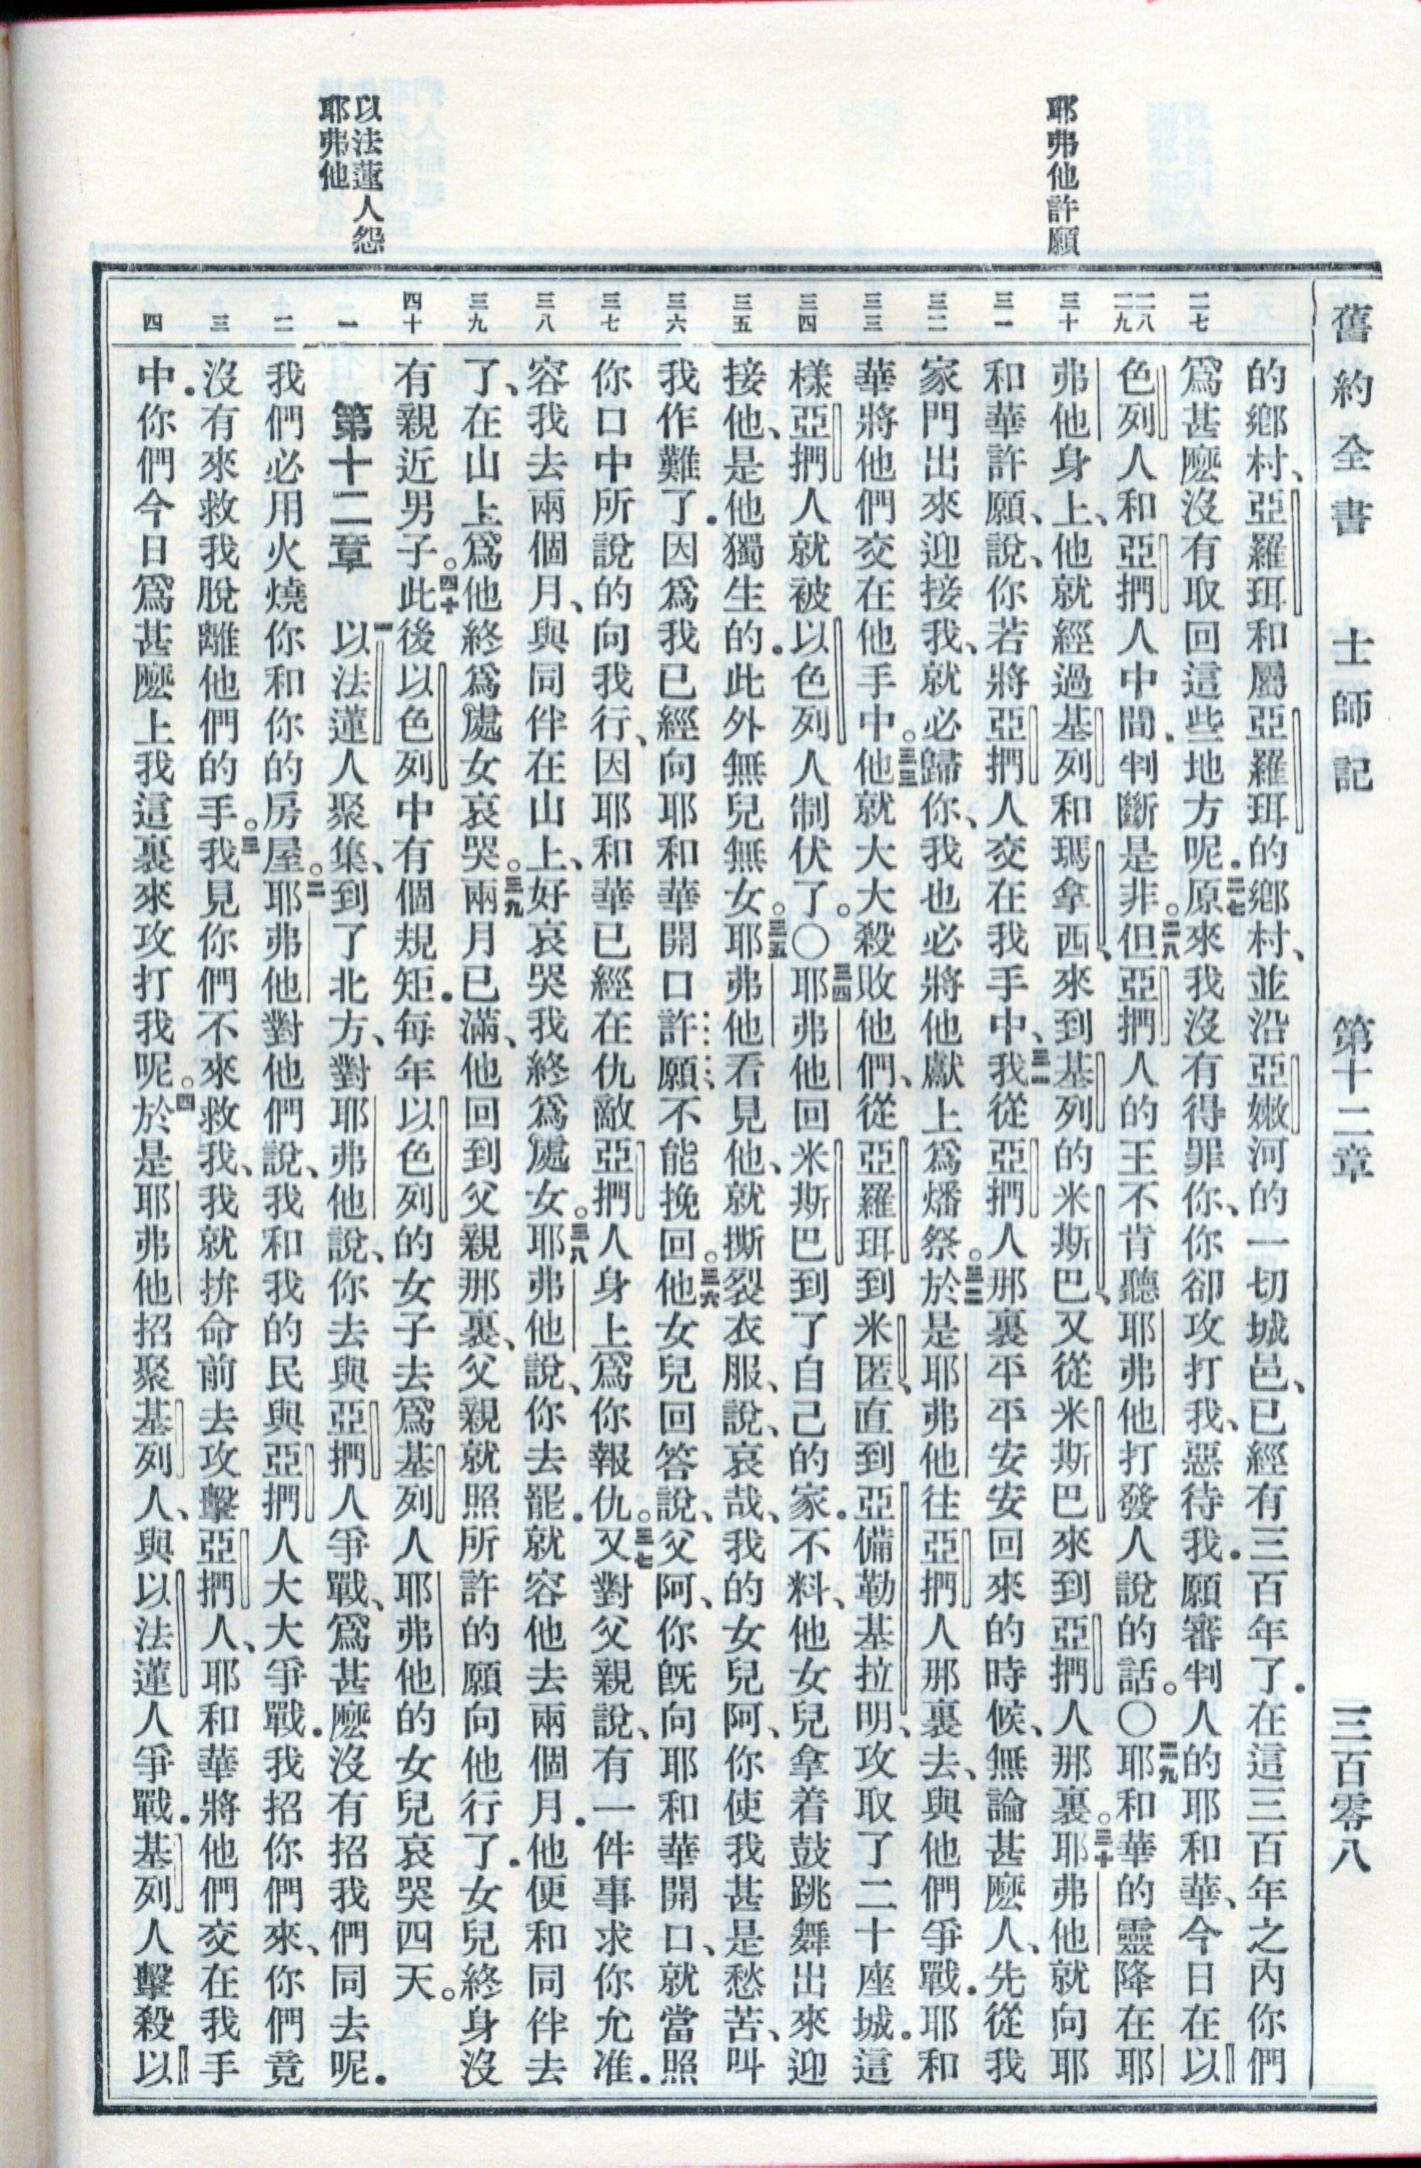 舊約全書　士師記　第十二章　三百零八
耶弗他許願
以法蓮人怨
耶弗他
二七
二八
二九
三十
三一
三二
三三
三四
三五
三六
三七
三八
三九
四十
一
二
三
四
的鄕村、亞羅珥和屬亞羅珥的鄕村、並沿亞嫩河的一切城邑、已經有三百年了．在這三百年之內你們
爲甚麼沒有取回這些地方呢．二七原來我沒有得罪你、你卻攻打我、惡待我．願審判人的耶和華、今日在以
色列人和亞捫人中間．判斷是非。二八但亞捫人的王不肯聽耶弗他打發人說的話。〇二九耶和華的靈降在耶
弗他身上、他就經過基列和瑪拿西、來到基列的米斯巴、又從米斯巴來到亞捫人那裏。三十耶弗他就向耶
和華許願、說、你若將亞捫人交在我手中、三一我從亞捫人那裏平平安安回來的時候、無論甚麼人、先從我
家門出來迎接我、就必歸你、我也必將他獻上爲燔祭。三二於是耶弗他往亞捫人那裏去、與他們爭戰．耶和
華將他們交在他手中。三三他就大大殺敗他們、從亞羅珥到米匿、直到亞備勒基拉明、攻取了二十座城．這
樣亞捫人就被以色列人制伏了。〇三四耶弗他回米斯巴到了自己的家．不料、他女兒拿着鼓跳舞出來迎
接他、是他獨生的．此外無兒無女。三五耶弗他看見他、就撕裂衣服、說、哀哉、我的女兒阿、你使我甚是愁苦、叫
我作難了．因爲我已經向耶和華開口許願、不能挽回。三六他女兒回答說、父阿、你旣向耶和華開口、就當照
你口中所說的向我行、因耶和華已經在仇敵亞捫人身上爲你報仇。三七又對父親說、有一件事求你允准．
容我去兩個月、與同伴在山上、好哀哭我終爲處女。三八耶弗他說、你去罷．就容他去兩個月．他便和同伴去
了、在山上爲他終爲處女哀哭。三九兩月已滿、他回到父親那裏、父親就照所許的願向他行了．女兒終身沒
有親近男子。四十此後以色列中有個規矩．每年以色列的女子去爲基列人耶弗他的女兒哀哭四天。
第十二章　一以法蓮人聚集、到了北方、對耶弗他說、你去與亞捫人爭戰、爲甚麼沒有招我們同去呢．
我們必用火燒你和你的房屋。二耶弗他對他們說、我和我的民與亞捫人大大爭戰．我招你們來、你們竟
沒有來救我脫離他們的手。三我見你們不來救我、我就拚命前去攻擊亞捫人、耶和華將他們交在我手
中．你們今日爲甚麼上我這裏來攻打我呢。四於是耶弗他招聚基列人、與以法蓮人爭戰．基列人擊殺以